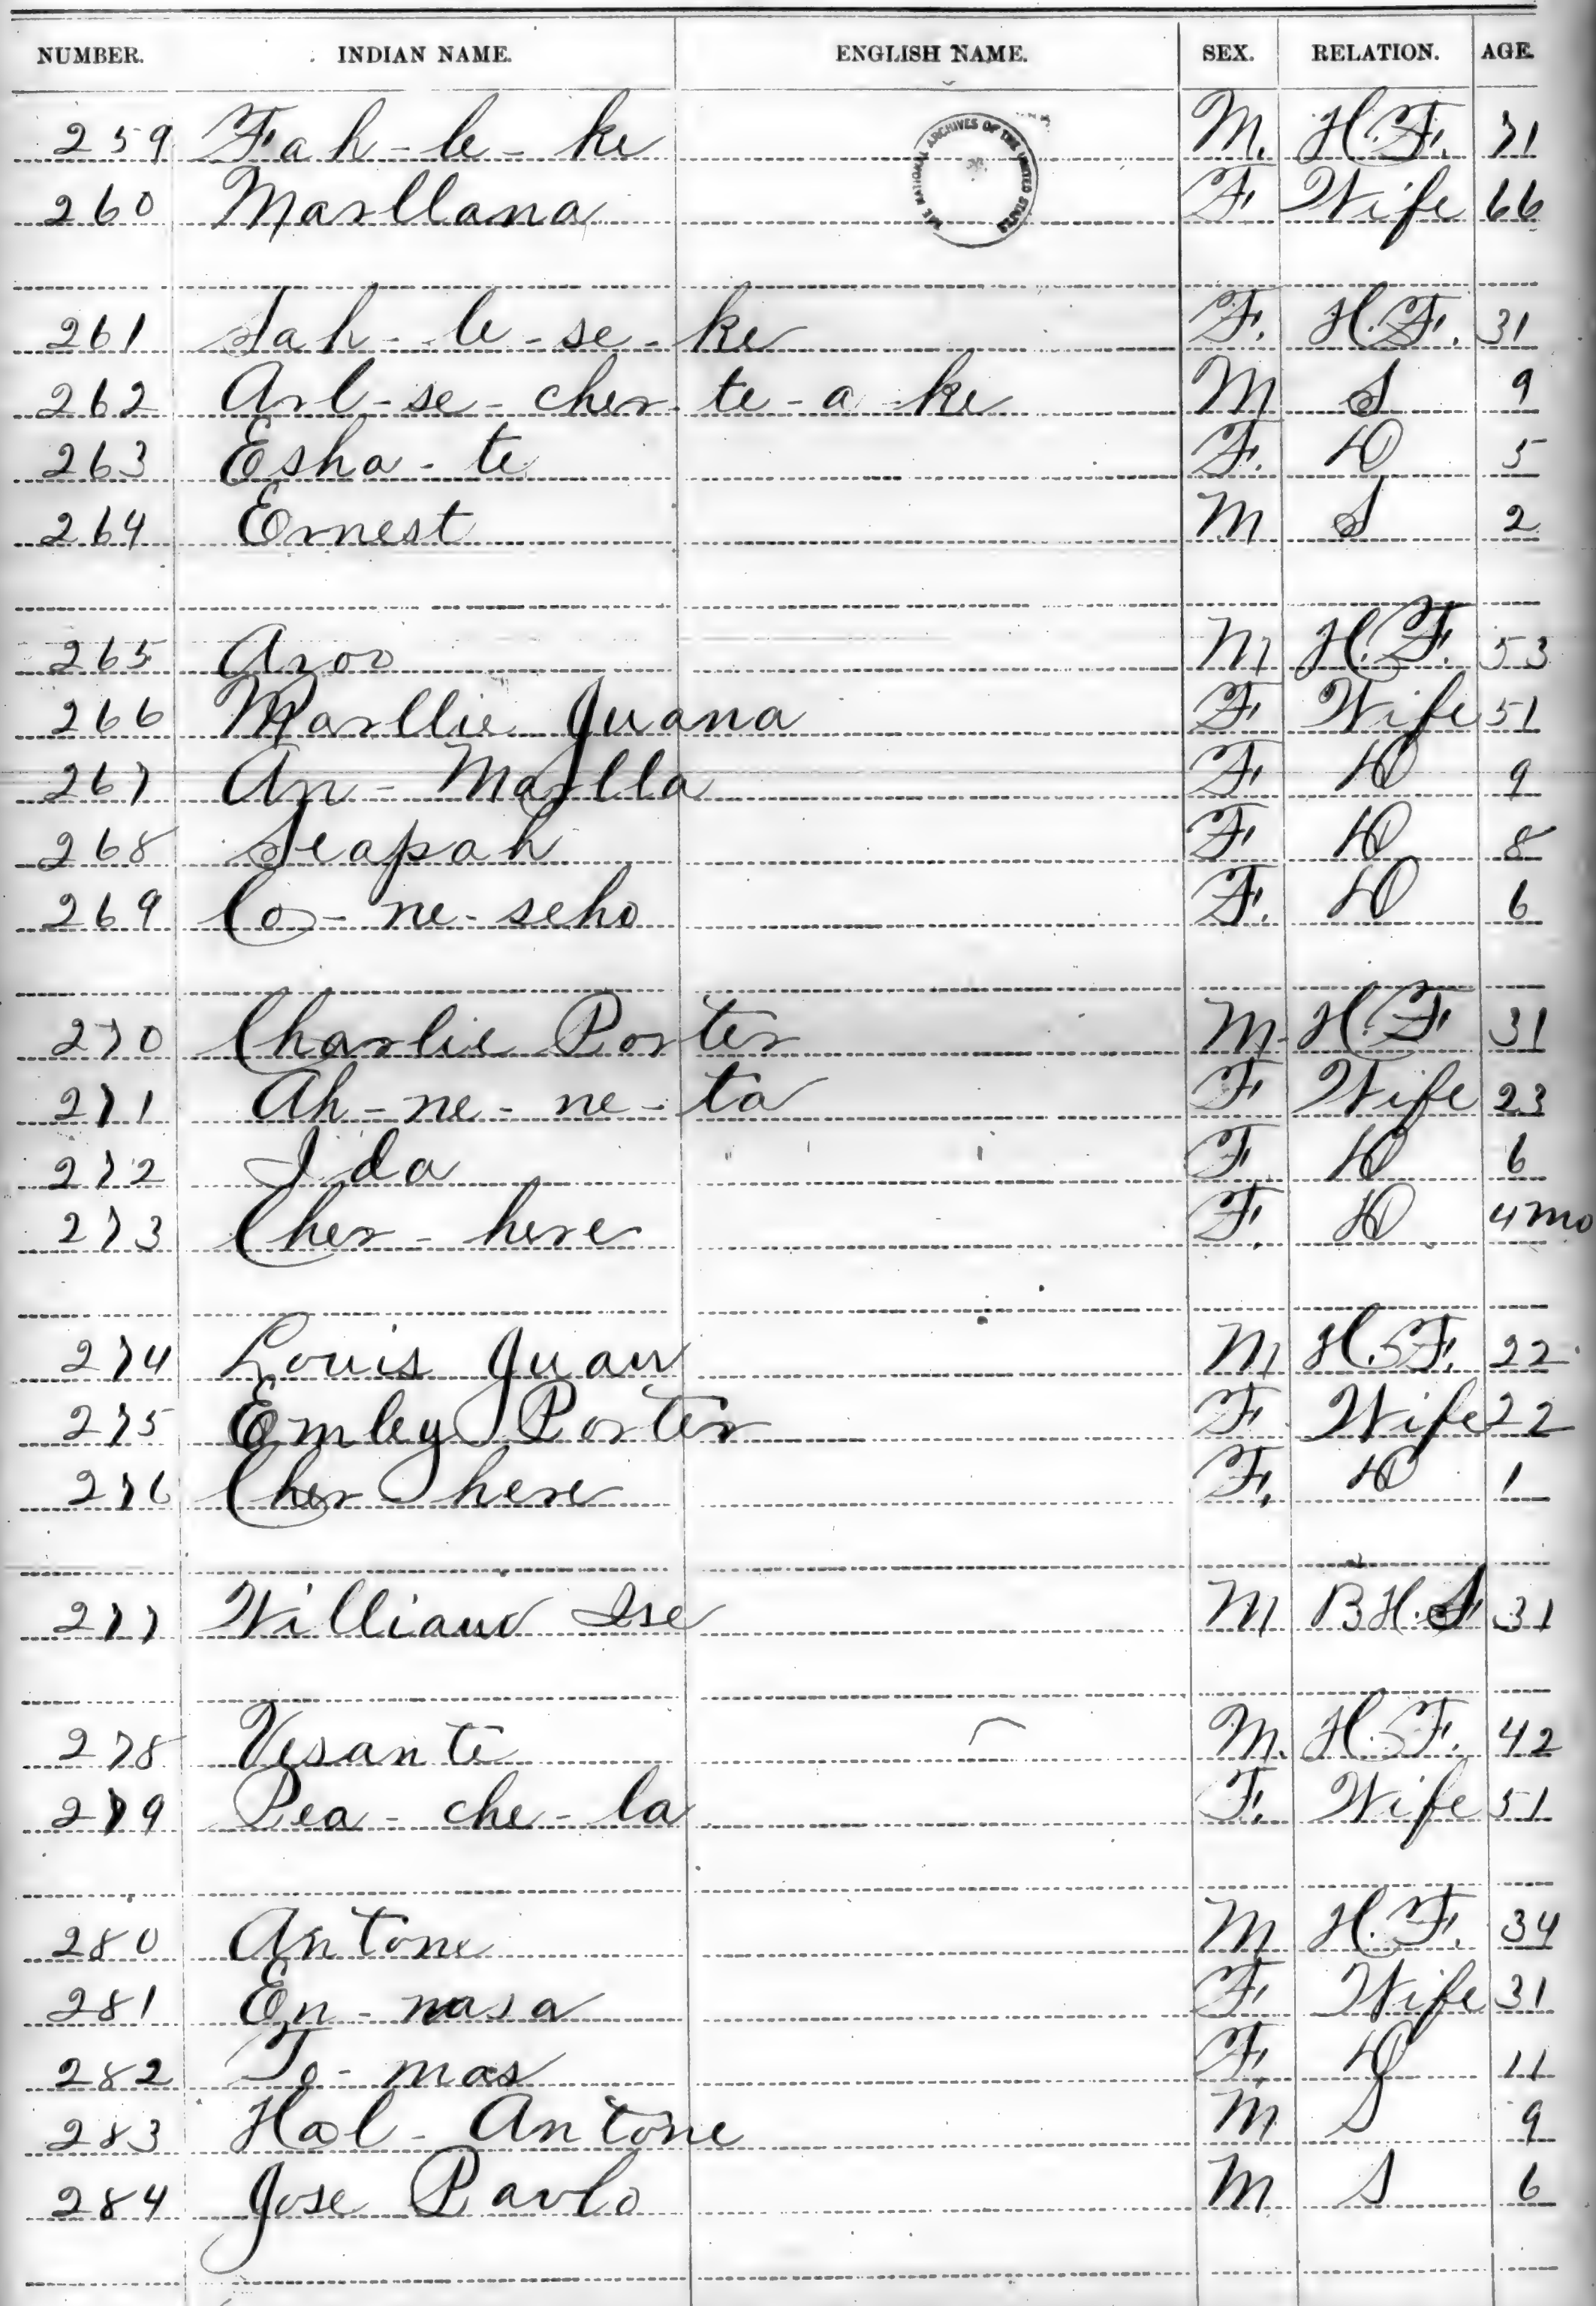 NUMBER. INDIAN NAME. ENGLISH NAME. SEX. RELATION. AGE.
THE NATIONAL ARCHIVES OF THE UNITED STATES
259 Fah-le-ke M. H.F. 71
260 Marllana F. Wife 66
261 Sah-le-se-ke F. H.F. 31
262 Arl-se-cher-te-a-ke M S 9
263 Esha-te F. D 5
264 Ernest M S 2
265 Azoo M H.F. 53
266 Marllie Juana F Wife 51
267 An-Marlla F D 9
268 Seapah F D 8
269 Co-ne-seho F. D 6
270 Charlie Porter M. H.F 31
271 Ah-ne-ne-ta F Wife 23
272 Ida F D 6
273 Cher-here F. D 4 mo
274 Louis Juan M H.F. 22
275 Emley Porter F. Wife 22
276 Cher here F. D 1
277 William Ise M 31
278 Vesante M. H.F. 42
279 Pea-che-la F. Wife 51
280 Antone M H.F. 34
281 En-nasa F Wife 31
282 To-mas F. D 11
283 Hal-Antone M S 9
284 Jose Pavlo M S 6